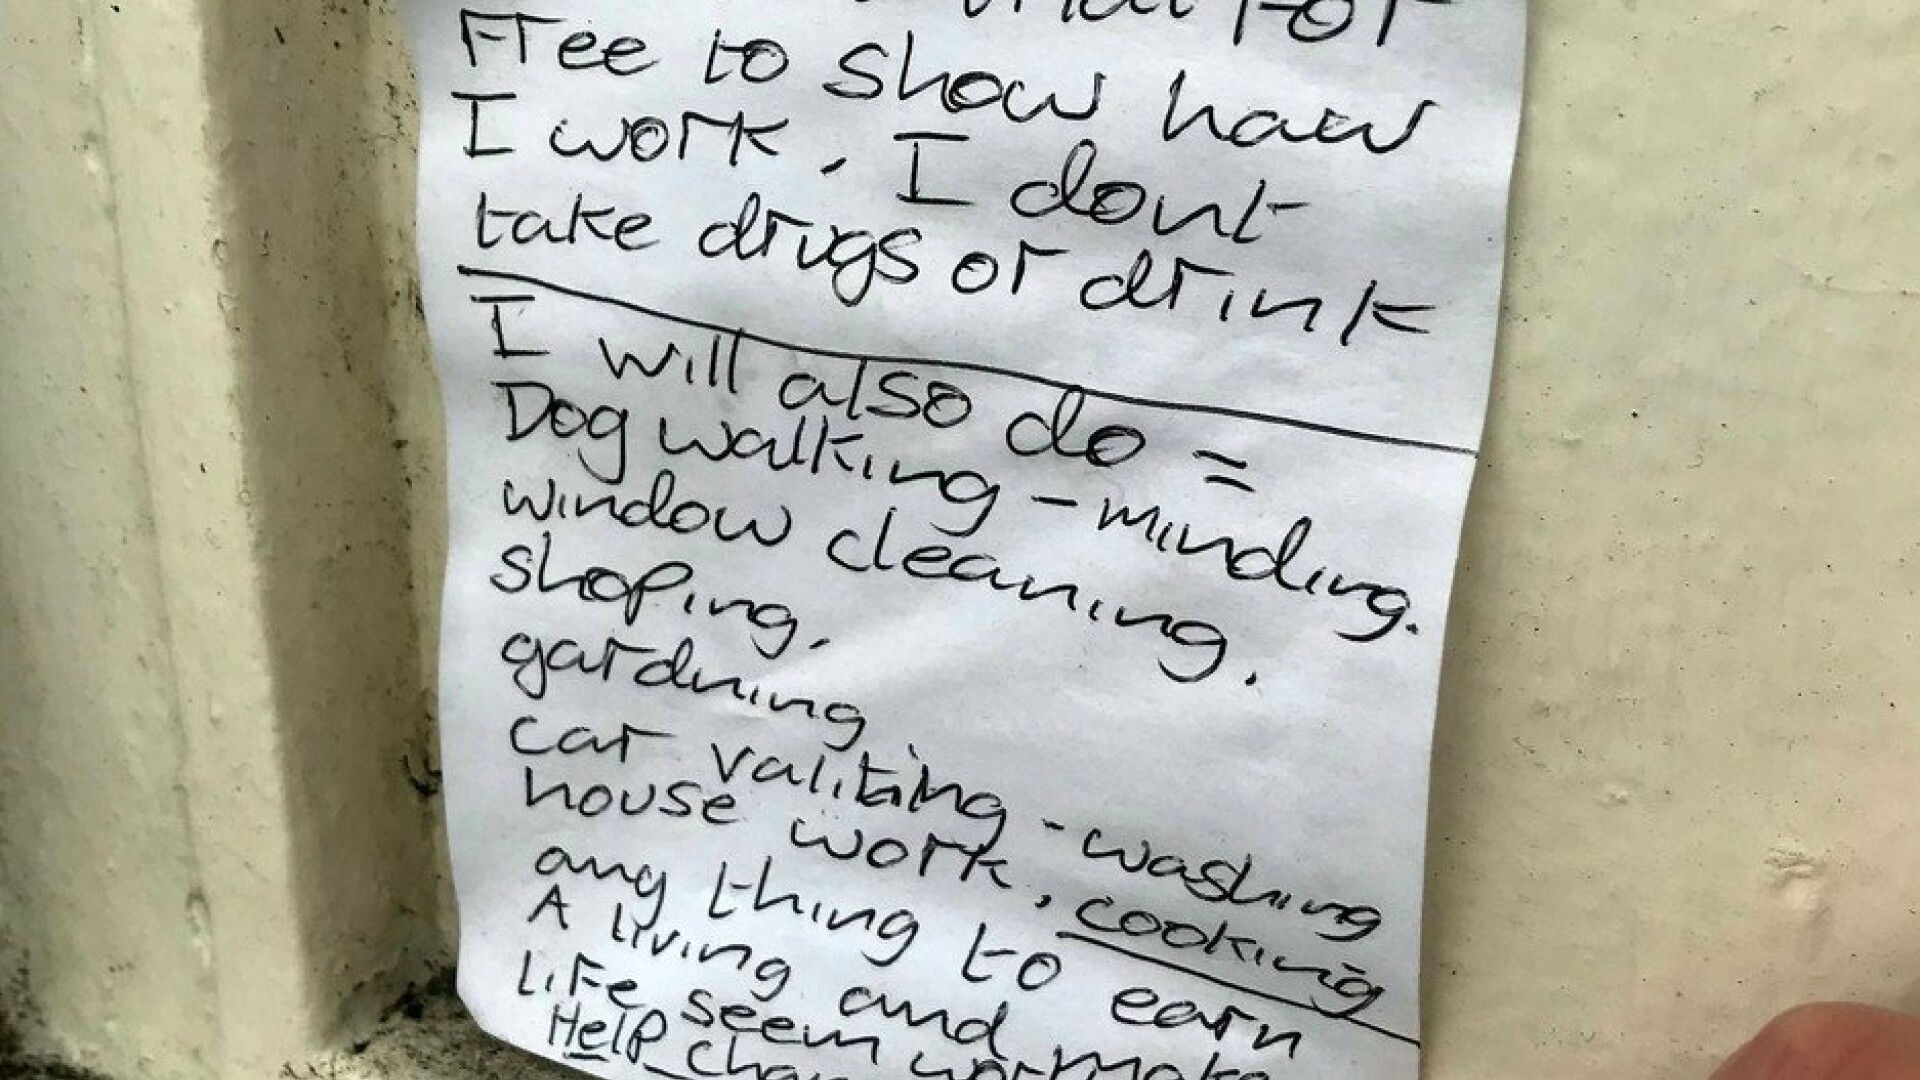 For
Free to show haw
I work, I dont
take drugs or drink
I will also do =
Dog walking - minding.
window cleaning.
shoping,
gardning
car valiting - washing
house work, cooking
any thing to earn
A living and make
life seem
Help